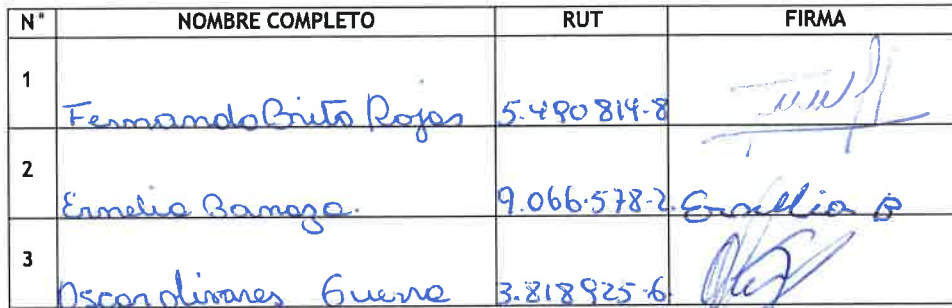 N° NOMBRE COMPLETO RUT FIRMA
1 Fernando Brito Rojas 5.490 814-8
2 Ermelia 9.066.578-2
3 Oscar Olivares Guerra 3.818925-6